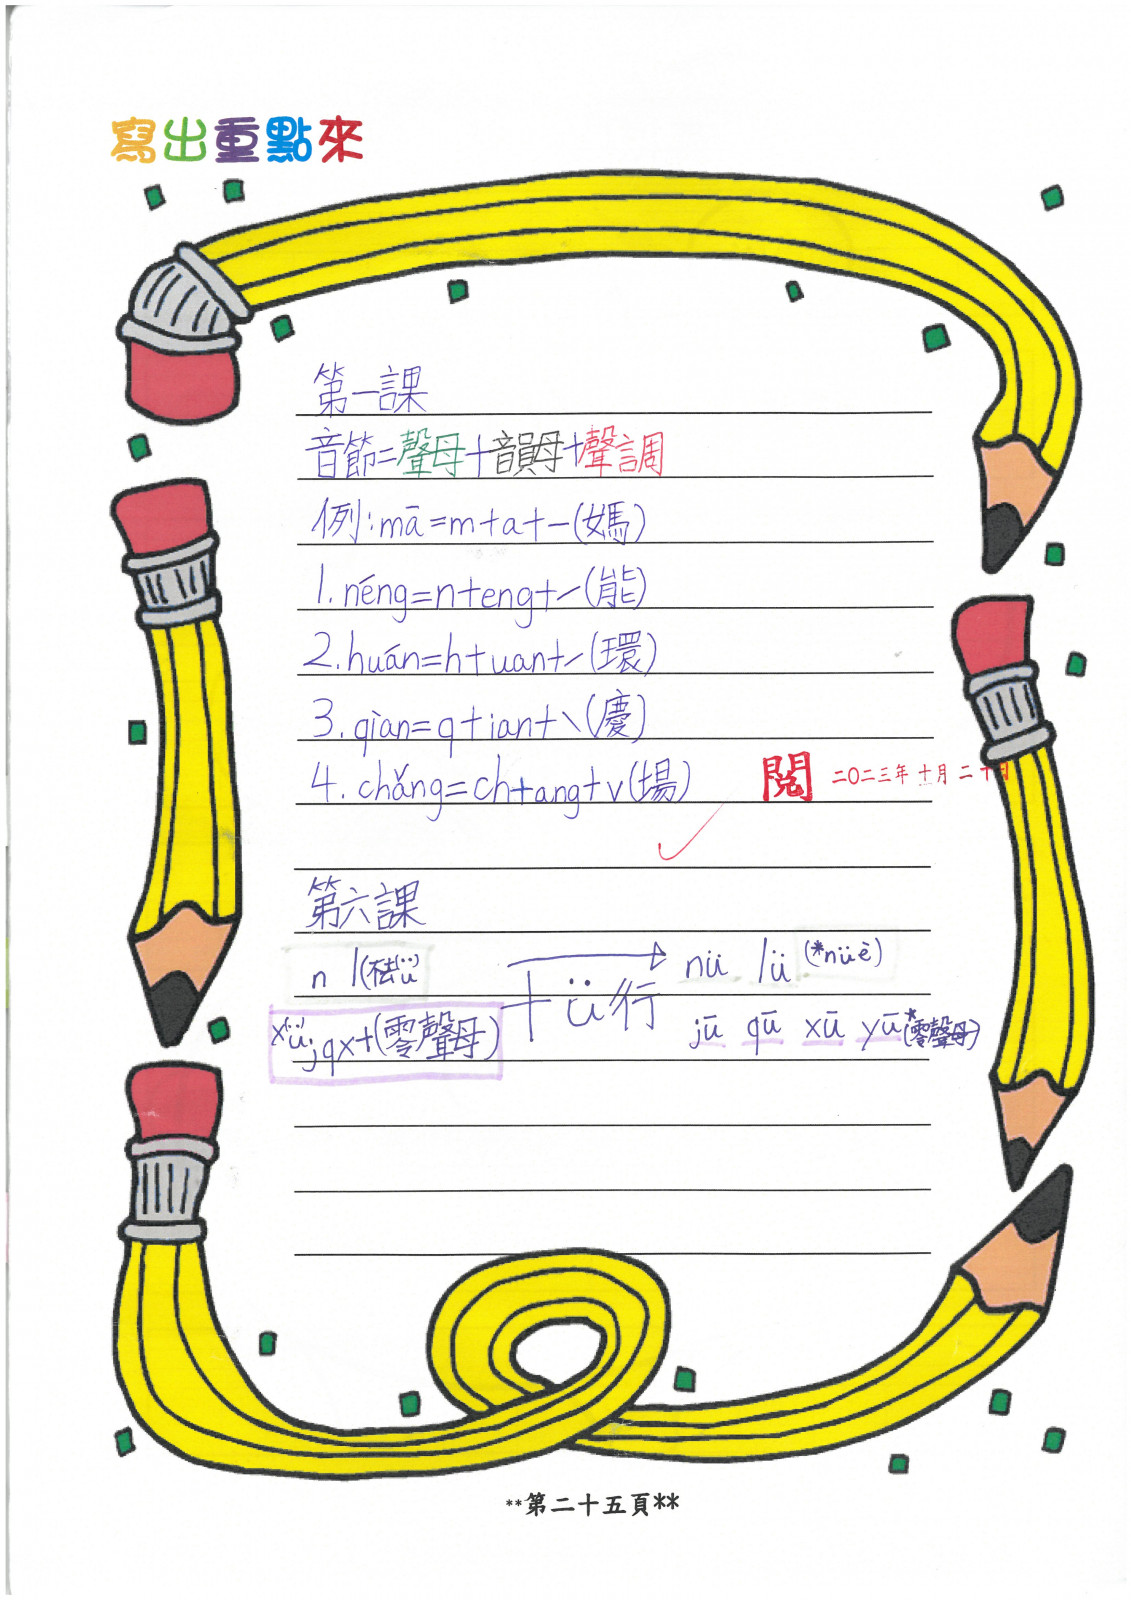 寫出重點來
第一課
音節=聲母+韻母+聲調
例:mā=m+a+ー(媽)
1.néng=n+eng+ˊ(能)
2.huán=h+uan+ˊ(環)
3.qìan=q+ian+ˋ(慶)
4.chǎng=ch+ang+v(場)
閱 二〇二三年十月二十日
第六課
n l(去ü) +ü行 nü lü (*nüè)
xü jqx+(零聲母) jū qū xū yū(*零聲母)
**第二十五頁**